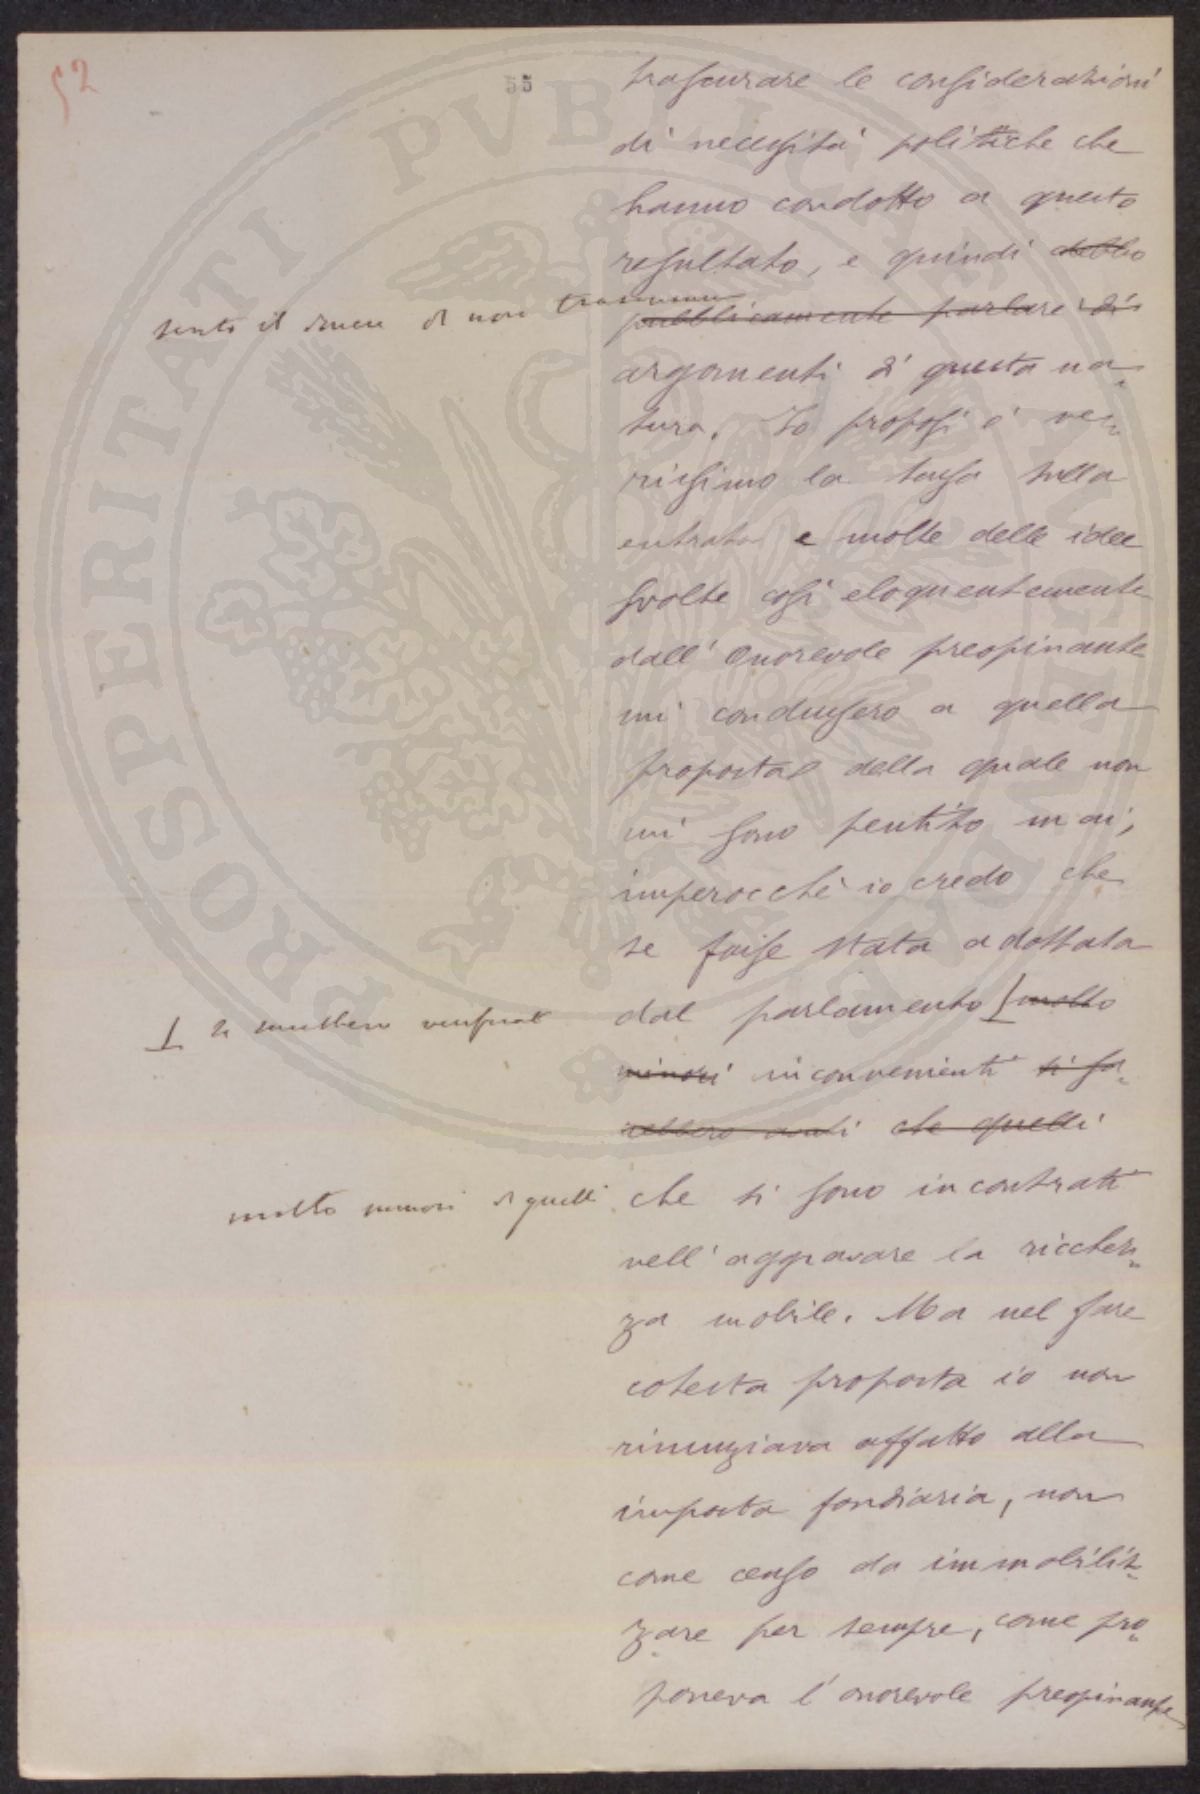 52
55
trascurare le considerazioni
di necessità politiche che
hanno condotto a questo
resultato, e quindi debbo
sento il dovere di non
pubblicamente parlare di
argomenti di questa na-
tura. Io proposi è ve-
rissimo la tassa sulla
entrata e molte delle idee
svolte così eloquentemente
dall'Onorevole preopinante
mi condussero a quella
proposta della quale non
mi sono pentito mai,
imperocchè io credo che
se fosse stata adottata
dal parlamento molto
si sarebbero verificati
minori inconvenienti si sa-
rebbero avuti che quelli
molto minori di quelli
che si sono incontrati
nell'aggravare la ricchez-
za mobile. Ma nel fare
cotesta proposta io non
rinunziava affatto alla
imposta fondiaria, non
come censo da immobiliz-
zare per sempre, come pro-
poneva l'onorevole preopinante
PROSPERITATI PVBLICAE AVGENDAE